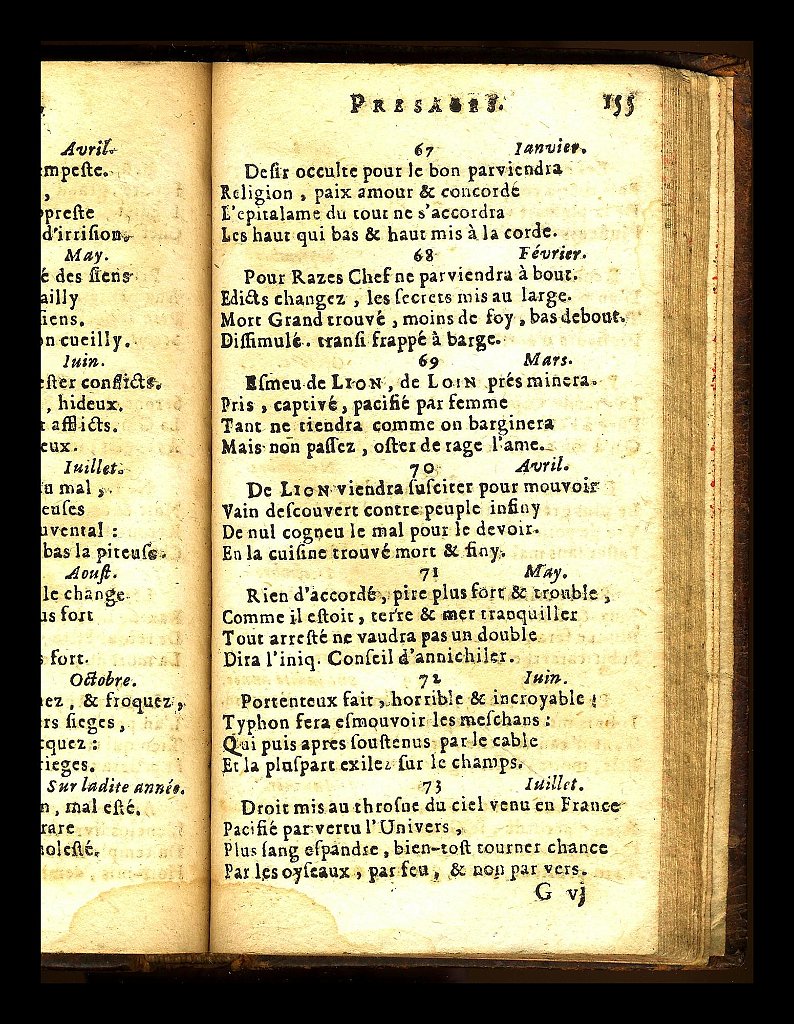 Avril.
mpeste.
,
ppreste
d'irrision.
May.
é des siens
ailly
siens.
on cueilly.
Iuin.
ester conflicts.
, hideux.
t afflicts.
eux.
Iuillet.
u mal ,
euses
uvental :
bas la piteuse.
Aoust.
le change
us fort
s fort.
Octobre.
nez , & froquez ,
ers sieges ,
cquez :
rieges.
Sur ladite année.
n , mal esté.
rare
nolesté.
PRESAGES. 155
67 Ianvier.
Desir occulte pour le bon parviendra
Religion , paix amour & concorde
L'epitalame du tout ne s'accordra
Les haut qui bas & haut mis à la corde.
68 Février.
Pour Razes Chef ne parviendra à bout.
Edicts changez , les secrets mis au large.
Mort Grand trouvé , moins de foy , bas debout.
Dissimulé. transi frappé à barge.
69 Mars.
Esmeu de LION , de LOIN prés minera.
Pris , captivé , pacifié par femme
Tant ne tiendra comme on barginera
Mais non passez , oster de rage l'ame.
70 Avril.
De LION viendra susciter pour mouvoir
Vain descouvert contre peuple infiny
De nul cogneu le mal pour le devoir.
En la cuisine trouvé mort & finy.
71 May.
Rien d'accordé , pire plus fort & trouble ,
Comme il estoit , terre & mer tranquiller
Tout arresté ne vaudra pas un double
Dira l'iniq. Conseil d'annichiler.
72 Iuin.
Portenteux fait , horrible & incroyable ;
Typhon fera esmouvoir les meschans :
Qui puis apres soustenus par le cable
Et la pluspart exilez sur le champs.
73 Iuillet.
Droit mis au throsne du ciel venu en France
Pacifié par vertu l'Univers ,
Plus sang espandre , bien-tost tourner chance
Par les oyseaux , par feu , & non par vers.
G vj